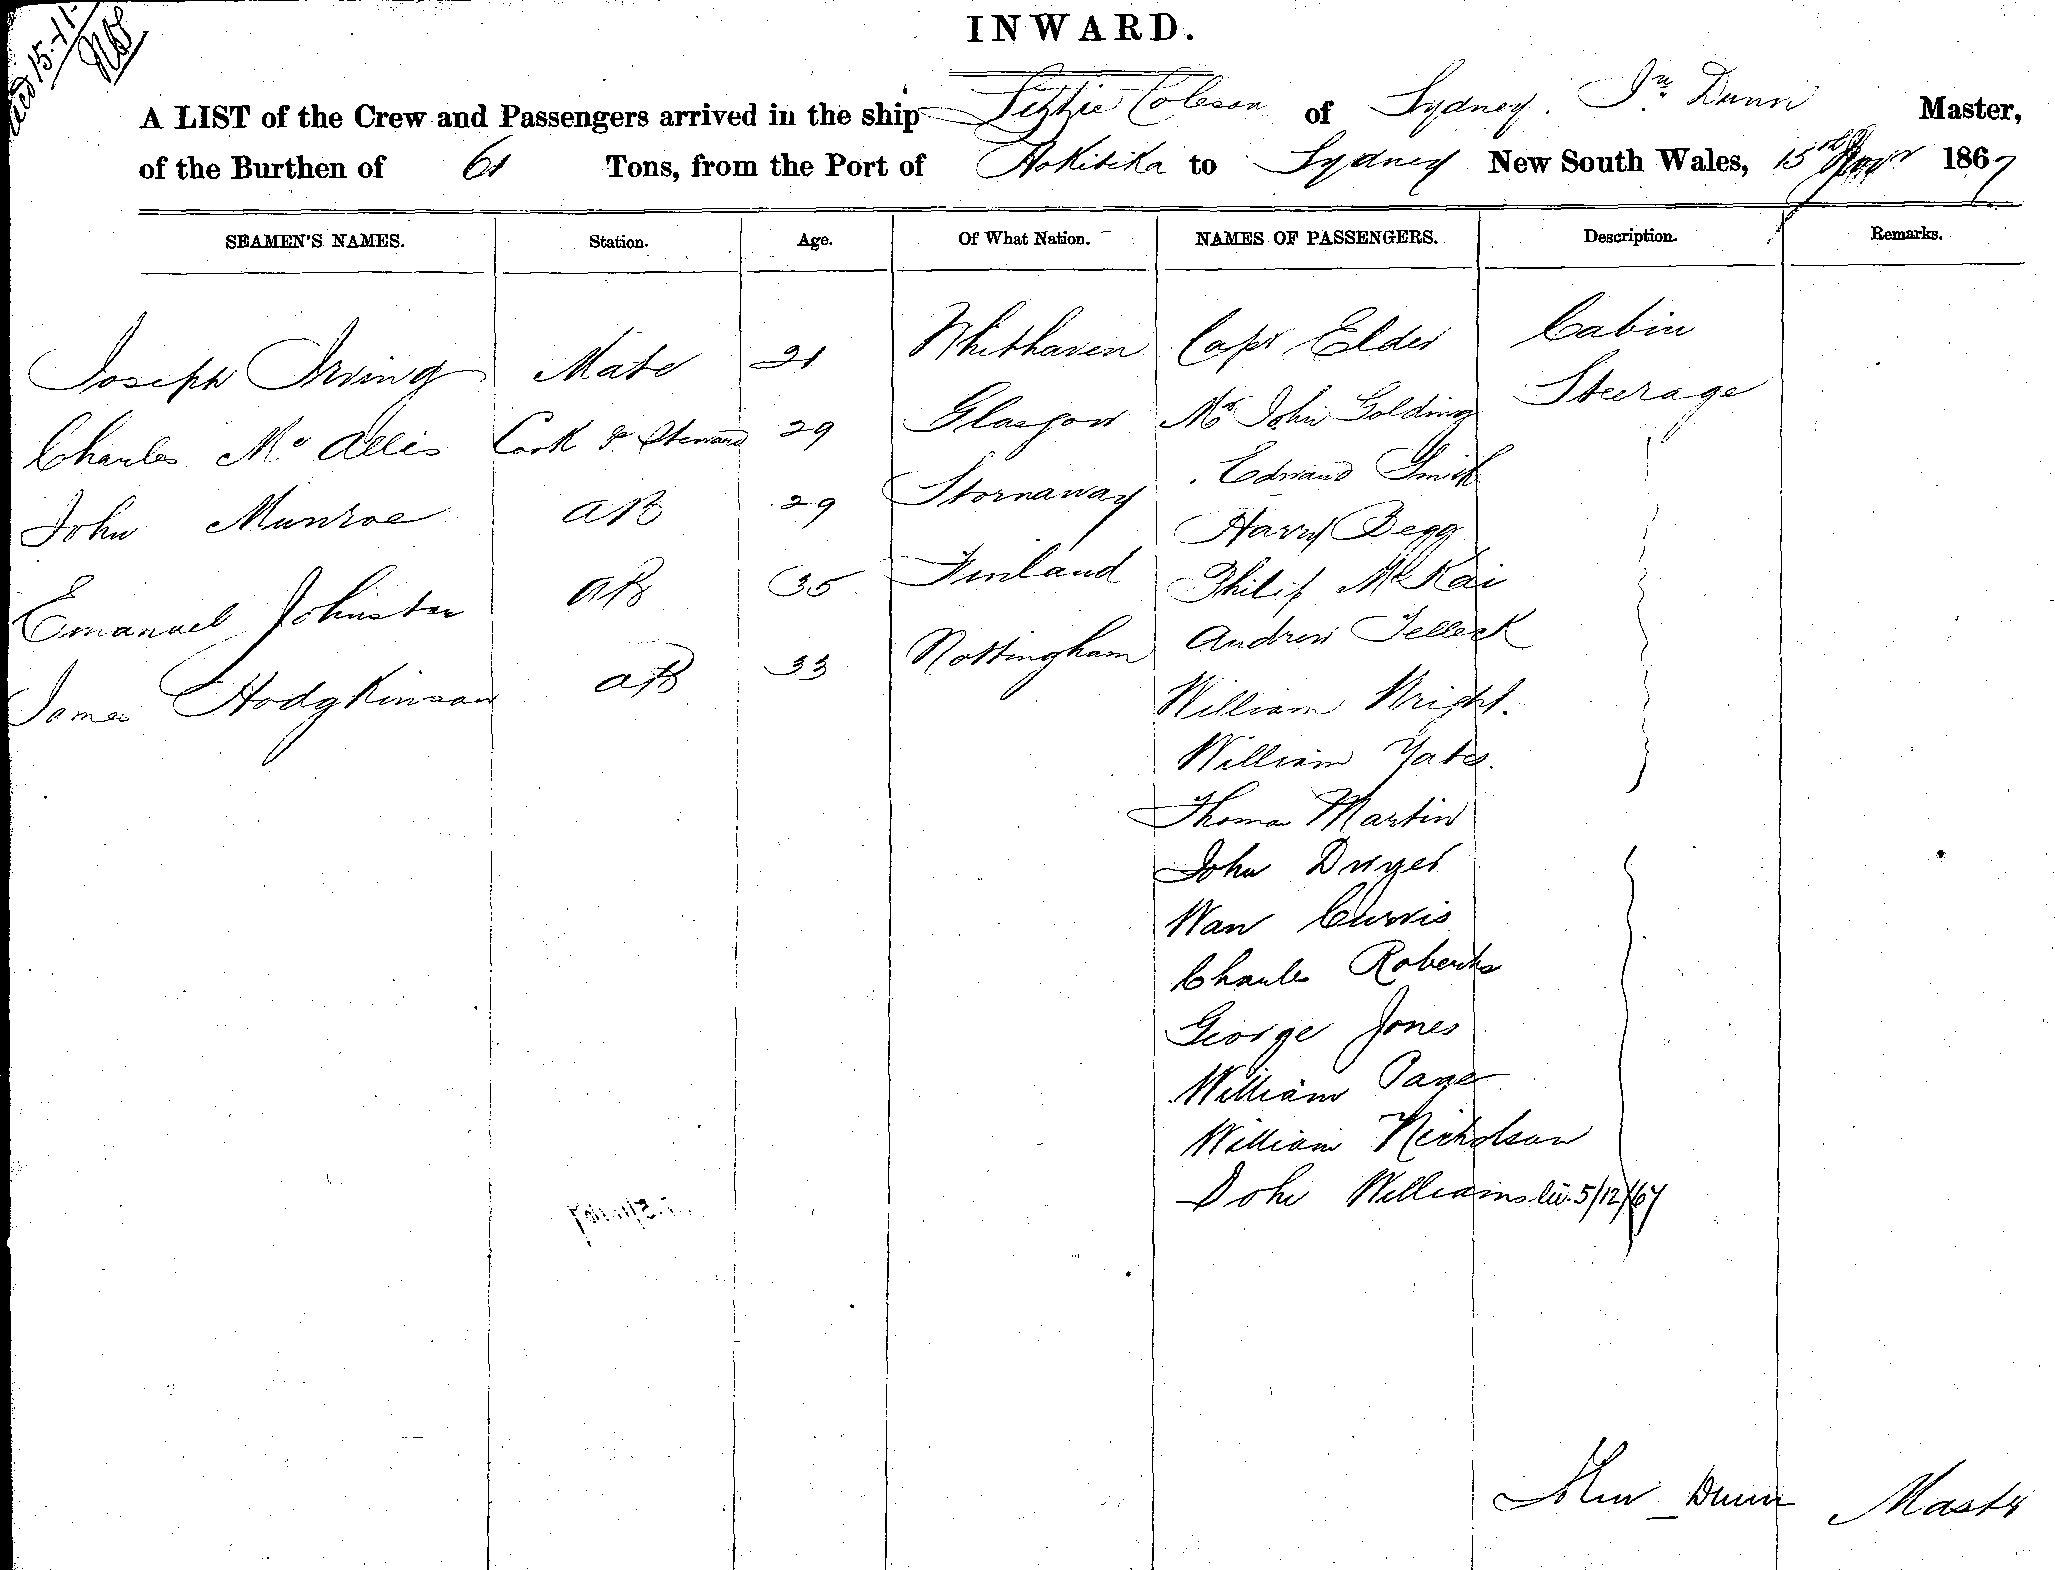 recd 15.11.
INWARD.
A LIST of the Crew and Passengers arrived in the ship Lizzie Coleson of Sydney. Jn Dunn Master,
of the Burthen of 61 Tons, from the Port of Hokitika to Sydney New South Wales, 15th Novr 1867
SEAMEN'S NAMES. Station. Age. Of What Nation. NAMES OF PASSENGERS. Description. Remarks.
Joseph Irving Mate 21 Whithaven Capt Elder Cabin
Charles Mc Allis Cook & Steward 29 Glasgow Mr John Golding Steerage
John Munroe AB 29 Stornaway Edward Smith
Harry Begg
Emanuel Johnston AB 35 Finland Philip McKai
James Hodgkinson AB 33 Nottingham Andrew Telleck
William Wright.
William Yates.
Thomas Martin
John Dwyer
Wan Curvis
Charles Roberts
George Jones
William Page
William Nicholson
John Williams 5/12/67
John Dunn Master